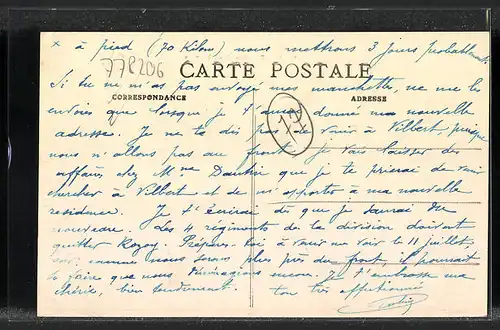 x à pied (70 Kilom) nous mettrons 3 jours probablement
77P206
CARTE POSTALE
Si tu ne m'as pas envoyé mes manchettes, ne me les
CORRESPONDANCE
ADRESSE
envoies que lorsque je t'aurai donné ma nouvelle
adresse. Je ne te dis pas de venir à Vilbert, puisque
nous n'allons pas au front. Je vais laisser des
affaires chez Mme que je te prierai de venir
chercher à Vilbert et de m'apporter à ma nouvelle
résidence. Je t'écrirai dès que je saurai du
nouveau. Les 4 régiments de la division doivent
quitter Rozoy. Prépare-toi à venir me voir le 11 juillet
car comme nous serons plus près du front, il pourrait
se faire que nous déménagions encore. Je t'embrasse ma
chérie, bien tendrement. ton très affectionné